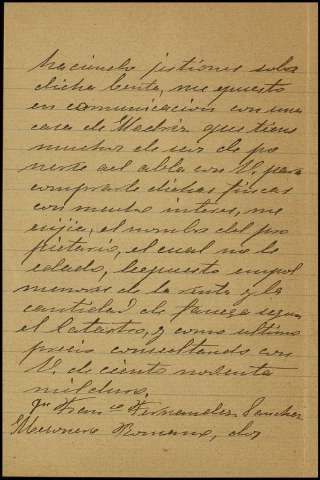 haciendo jistiones sobre
dicha benta, me epuesto
en comunicacion con una
casa de Madriz que tiene
muchos deseos de po
nerse al abla con V. para
comprarle dichas fincas
con mucho interes, me
esije, el nombre del pro
pietario, el cual no le
edado, le epuesto en
menoria de la renta y la
cantidad de fanega segun
el Catastro, y como ultimo
precio consultando con
V. de ciento nobenta
mil duros.
Fran.co Fernandez Sanchez
Mesonero Romano, dos